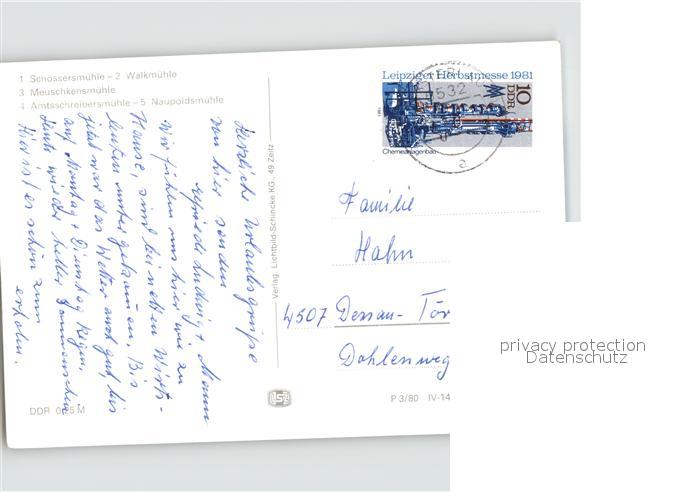 1 Schössersmühle – 2 Walkmühle
3 Meuschkensmühle
4 Amtsschreibersmühle – 5 Naupoldsmühle
Herzliche Urlaubsgrüße
von hier senden
Ludwig + Mann
Wir fühlen uns hier wie zu
Hause, sind bei netten Wirts-
leuten untergekommen. Bis
jetzt war das Wetter auch gut bis
auf Montag + Dienstag Regen,
heute wieder heller Sonnenschein
Hier ist es schön zum
erholen.
DDR 0,25 M
Verlag Lichtbild-Schincke KG., 49 Zeitz
Leipziger Herbstmesse 1981
10
DDR
Chemieanlagenbau
532
a
Familie
Hahn
4507 Dessau- Tör
Dohlenweg
P 3/80 IV-14
privacy protection
Datenschutz